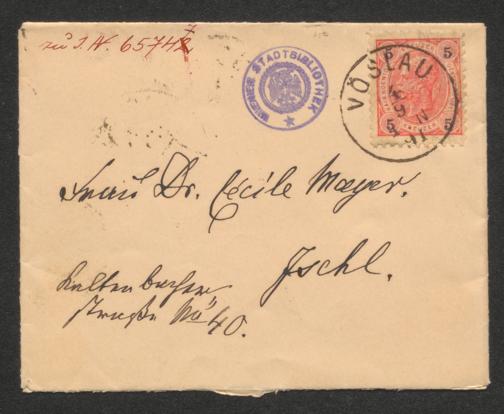 zu I.N. 65742
WIENER STADTBIBLIOTHEK
5 5
5 5
VÖSLAU
Frau Dr. Cécile Mayer.
Ischl.
Kaltenbacher
straße No 40.